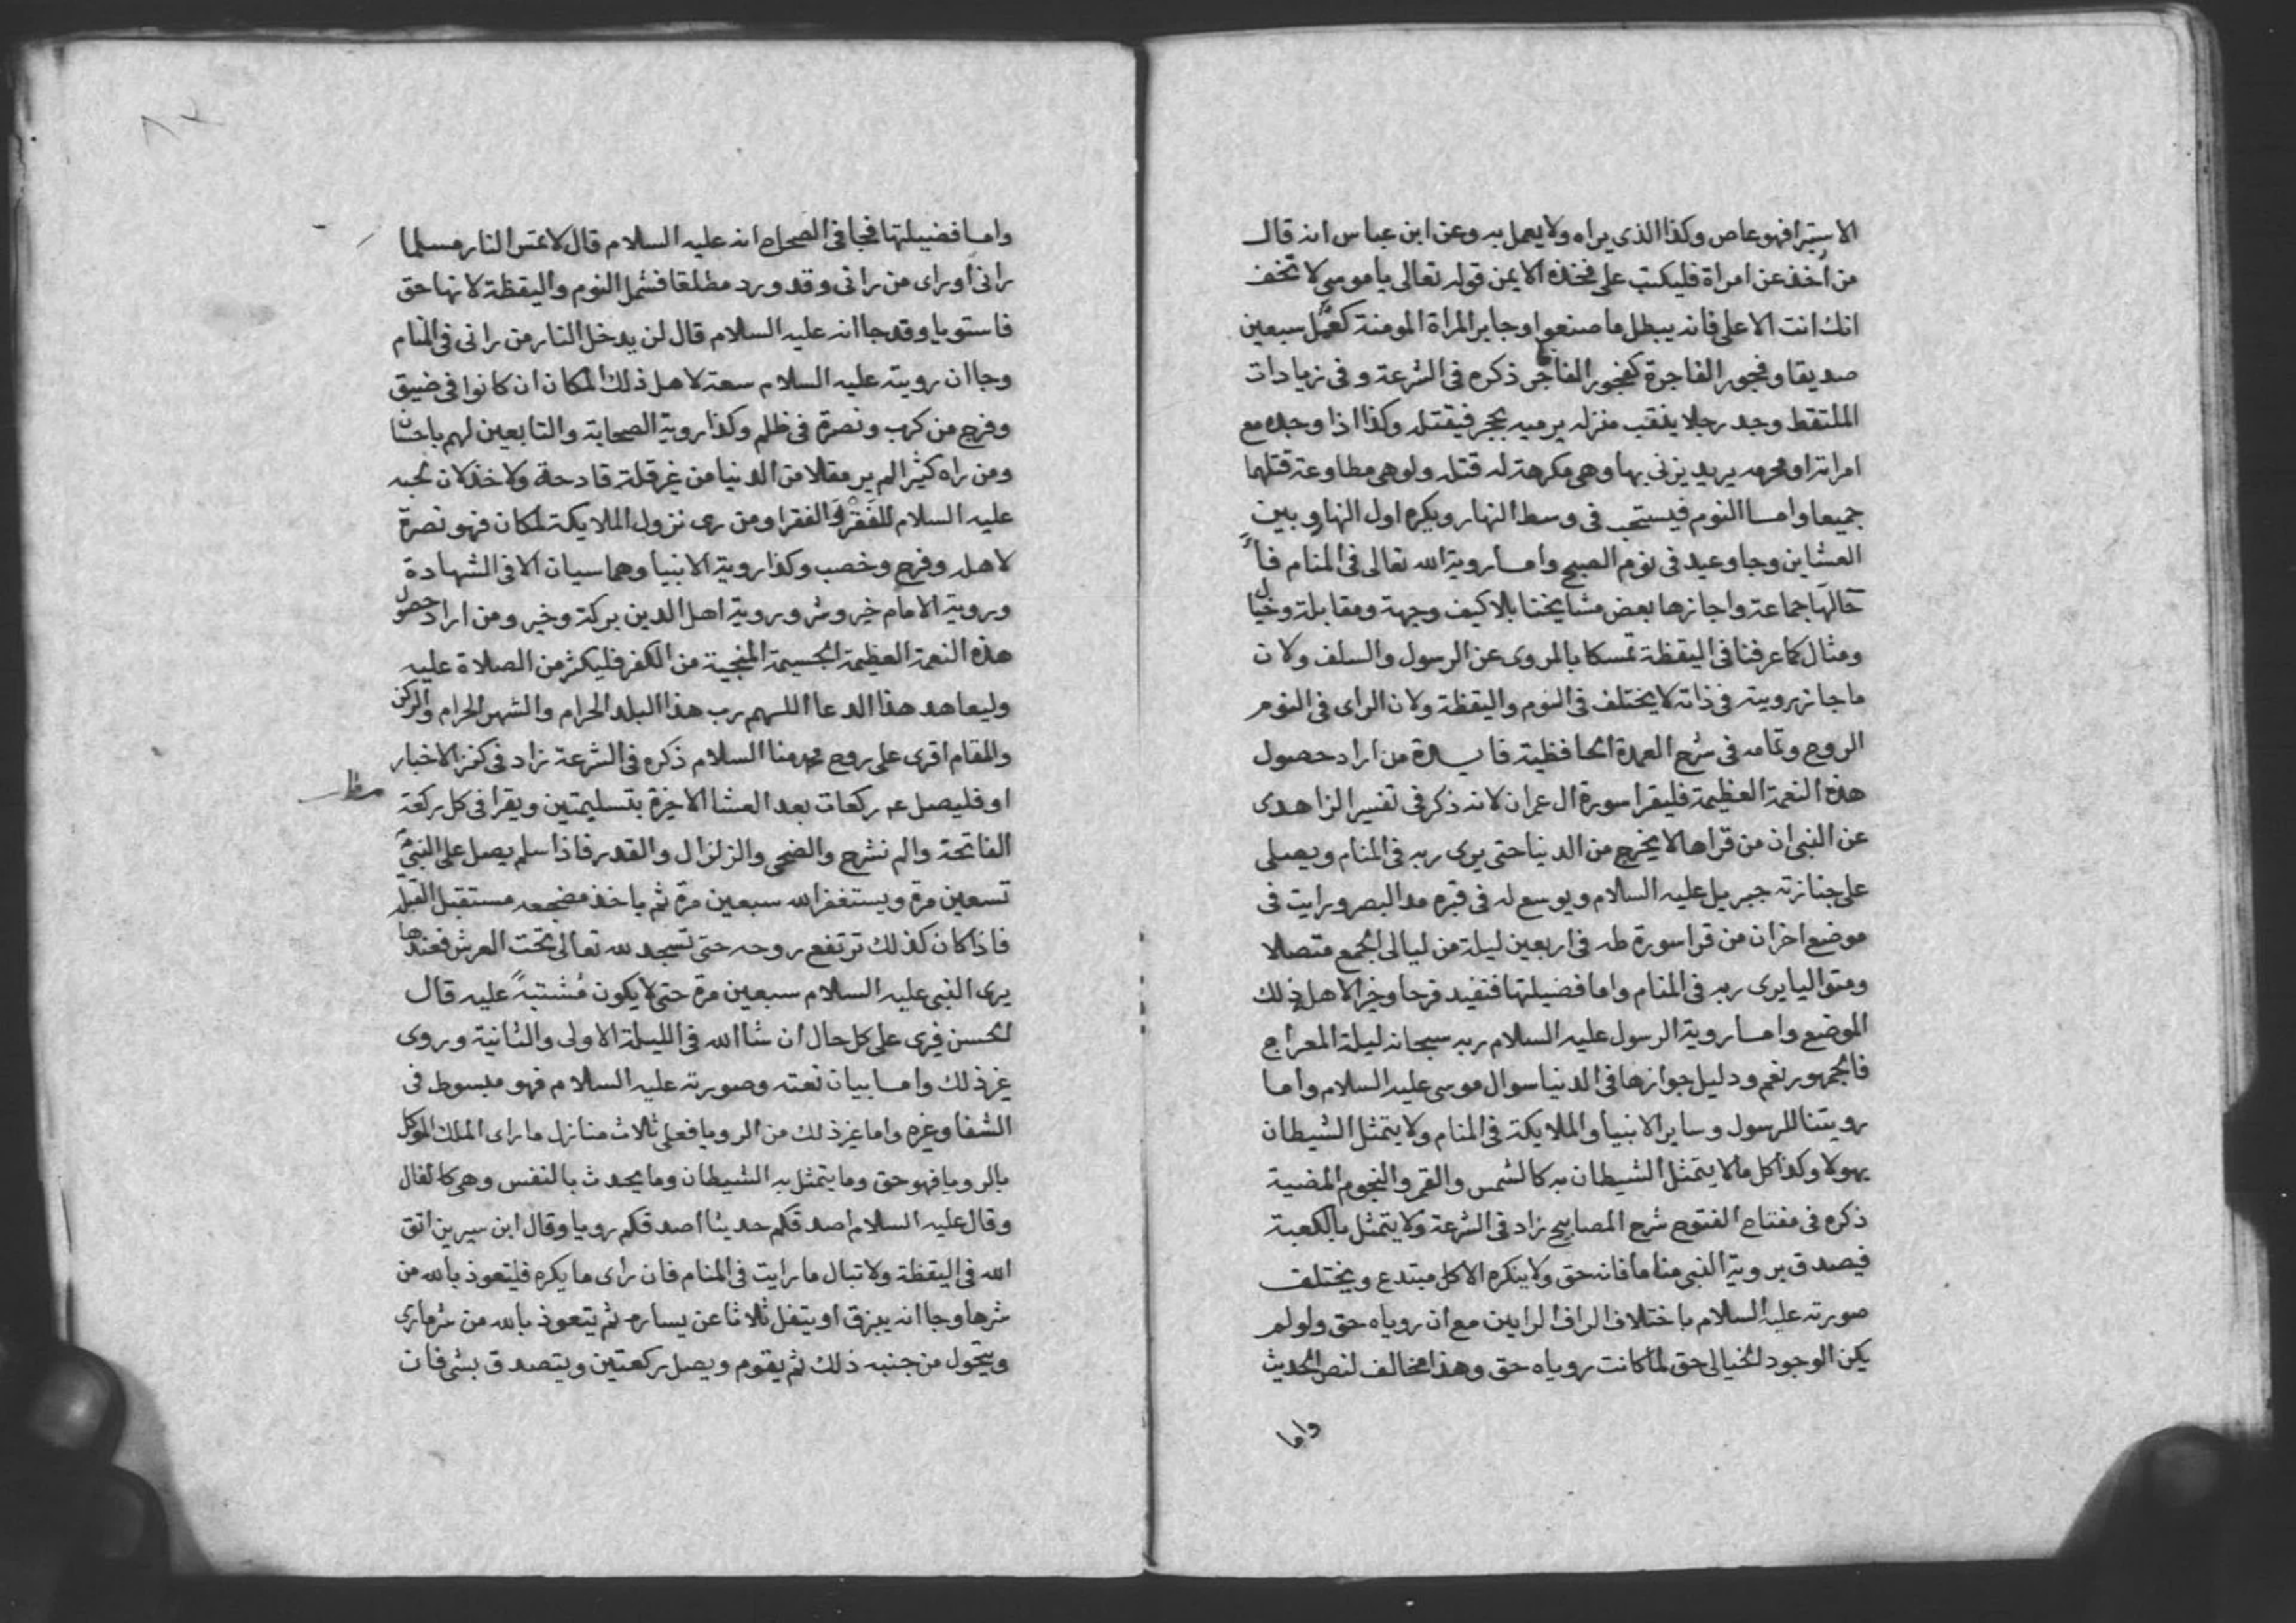 الاستبرا فهو عاص وكذا الذى يراه ولا يعمل به وعن ابن عباس انه قال
من اخذ عن امراة فليكتب على فخذه الايمن قوله تعالى يا موسى لا تخف
انك انت الاعلى فانه يبطل ما صنعوا وجا بر المراة المومنة كعمل سبعين
صديقا وفجور الفاجرة كفجور الفاجر ذكره فى الشرعة وفى زيادات
الملتقط وجد رجلا ينقب منزله يرميه بحجر فيقتله وكذا اذا وجده مع
امراته او محرمه يريد يزنى بها وهى مكرهة له قتله ولو هى مطاوعة قتلهما
جميعا واما النوم فيستحب فى وسط النهار ويكره اول النهار وبين
العشاين وجا وعيد فى نوم الصبح واما روية الله تعالى فى المنام
جماعة واجازها بعض مشايخنا بلا كيف وجهة ومقابلة وخيال
ومثال كما عرفنا فى اليقظة تمسكا بالمروى عن الرسول والسلف ولان
ما جاز رويته فى ذاته لا يختلف فى النوم واليقظة ولان الراى فى النوم
الروح وتمامه فى شرح العمدة الحافظية فايدة من اراد حصول
هذه النعمة العظيمة فليقرا سورة ال عمران لانه ذكر فى تفسير الزاهدى
عن النبى ان من قراها لا يخرج من الدنيا حتى يرى ربه فى المنام ويصلى
على جنازته جبريل عليه السلام ويوسع له فى قبره مد البصر ورايت فى
موضع اخران من قرا سورة طه فى اربعين ليلة من ليالى الجمع متصلا
ومتواليا يرى ربه فى المنام واما فضيلتها فتفيد فرحا وخيرا لاهل ذلك
الموضع واما روية الرسول عليه السلام ربه سبحانه ليلة المعراج
فالجمهور نعم ودليل جوازها فى الدنيا سوال موسى عليه السلام واما
رويتنا للرسول وساير الانبيا والملايكة فى المنام ولا يتمثل الشيطان
بهولا وكذا كل ما لا يتمثل الشيطان به كالشمس والقمر والنجوم المضية
ذكره فى مفتاح الفتوح شرح المصابيح زاد فى الشرعة ولا يتمثل بالكعبة
فيصدق بروية النبى مناما فانه حق ولا ينكره الا كل مبتدع ويختلف
صورته عليه السلام باختلاف الراف الرايين مع ان روياه حق ولو لم
يكن الوجود الخيالى حق لما كانت روياه حق وهذا مخالف لنص الحديث
واما
واما فضيلتها فجا فى الصحاح انه عليه السلام قال لا تمس النار مسلما
رانى او راى من رانى وقد ورد مطلقا فشمل النوم واليقظة لانها حق
فاستويا وقد جا انه عليه السلام قال لن يدخل النار من رانى فى المنام
وجا ان رويته عليه السلام سعة لاهل ذلك المكان ان كانوا فى ضيق
وفرج من كرب ونصرة فى ظلم وكذا روية الصحابة والتابعين لهم باحسان
ومن راه كثيرا لم ير مقلا من الدنيا من غير قلة قادحة ولا خذلان لحبه
عليه السلام للفقر والفقرا ومن رى نزول الملايكة لمكان فهو نصرة
لاهله وفرج وخصب وكذا روية الانبيا وهما سيان الا فى الشهادة
وروية الامام خير وشر وروية اهل الدين بركة وخير ومن اراد حصول
هذه النعمة العظيمة الجسيمة المنجية من الكفر فليكثر من الصلاة عليه
وليعاهد هذا الدعا اللهم رب هذا البلد الحرام والشهر الحرام والركن
والمقام اقرى على روح محمد منا السلام ذكره فى الشرعة زاد فى كنز الاخبار
او فليصل ع ركعات بعد العشا الاخيرة بتسليمتين ويقرا فى كل ركعة
الفاتحة والم نشرح والضحى والزلزال والقدر فاذا سلم يصل على النبى
تسعين مرة ويستغفر الله سبعين مرة ثم ياخذ مضجعه مستقبل القبلة
فاذا كان كذلك ترتفع روحه حتى تسجد لله تعالى تحت العرش فعندها
يرى النبى عليه السلام سبعين مرة حتى لا يكون مشتبه عليه قال
الحسن فيرى على كل حال ان شا الله فى الليلة الاولى والثانية وروى
غير ذلك واما بيان نعته وصورته عليه السلام فهو مبسوط فى
الشفا وغيره واما غير ذلك من الرويا فعلى ثلاث منازل ما راى الملك الموكل
بالرويا فهو حق وما يتمثل به الشيطان وما يحدث بالنفس وهى كالفال
وقال عليه السلام اصدقكم حديثا اصدقكم رويا وقال ابن سيرين اتق
الله فى اليقظة ولا تبال ما رايت فى المنام فان راى ما يكره فليتعوذ بالله من
شرها وجا انه يبزق او يتفل ثلاثا عن يساره ثم يتعوذ بالله من شر ما راى
ويتحول من جنبه ذلك ثم يقوم ويصل ركعتين ويتصدق بشى فان